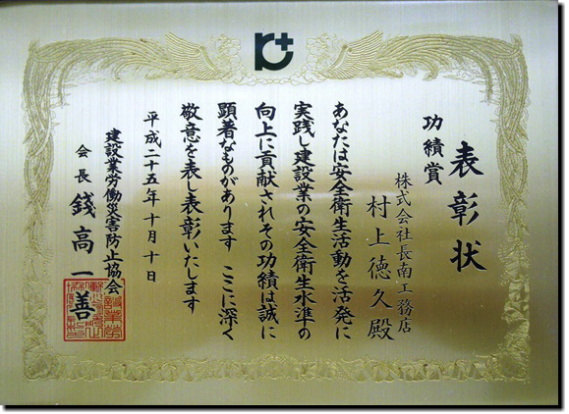 表彰状
功績賞
株式会社長南工務店
村上徳久殿
あなたは安全衛生活動を活発に
実践し建設業の安全衛生水準の
向上に貢献されその功績は誠に
顕著なものがあります ここに深く
敬意を表し表彰いたします
平成二十五年十月十日
建設業労働災害防止協会
会長 錢高一善